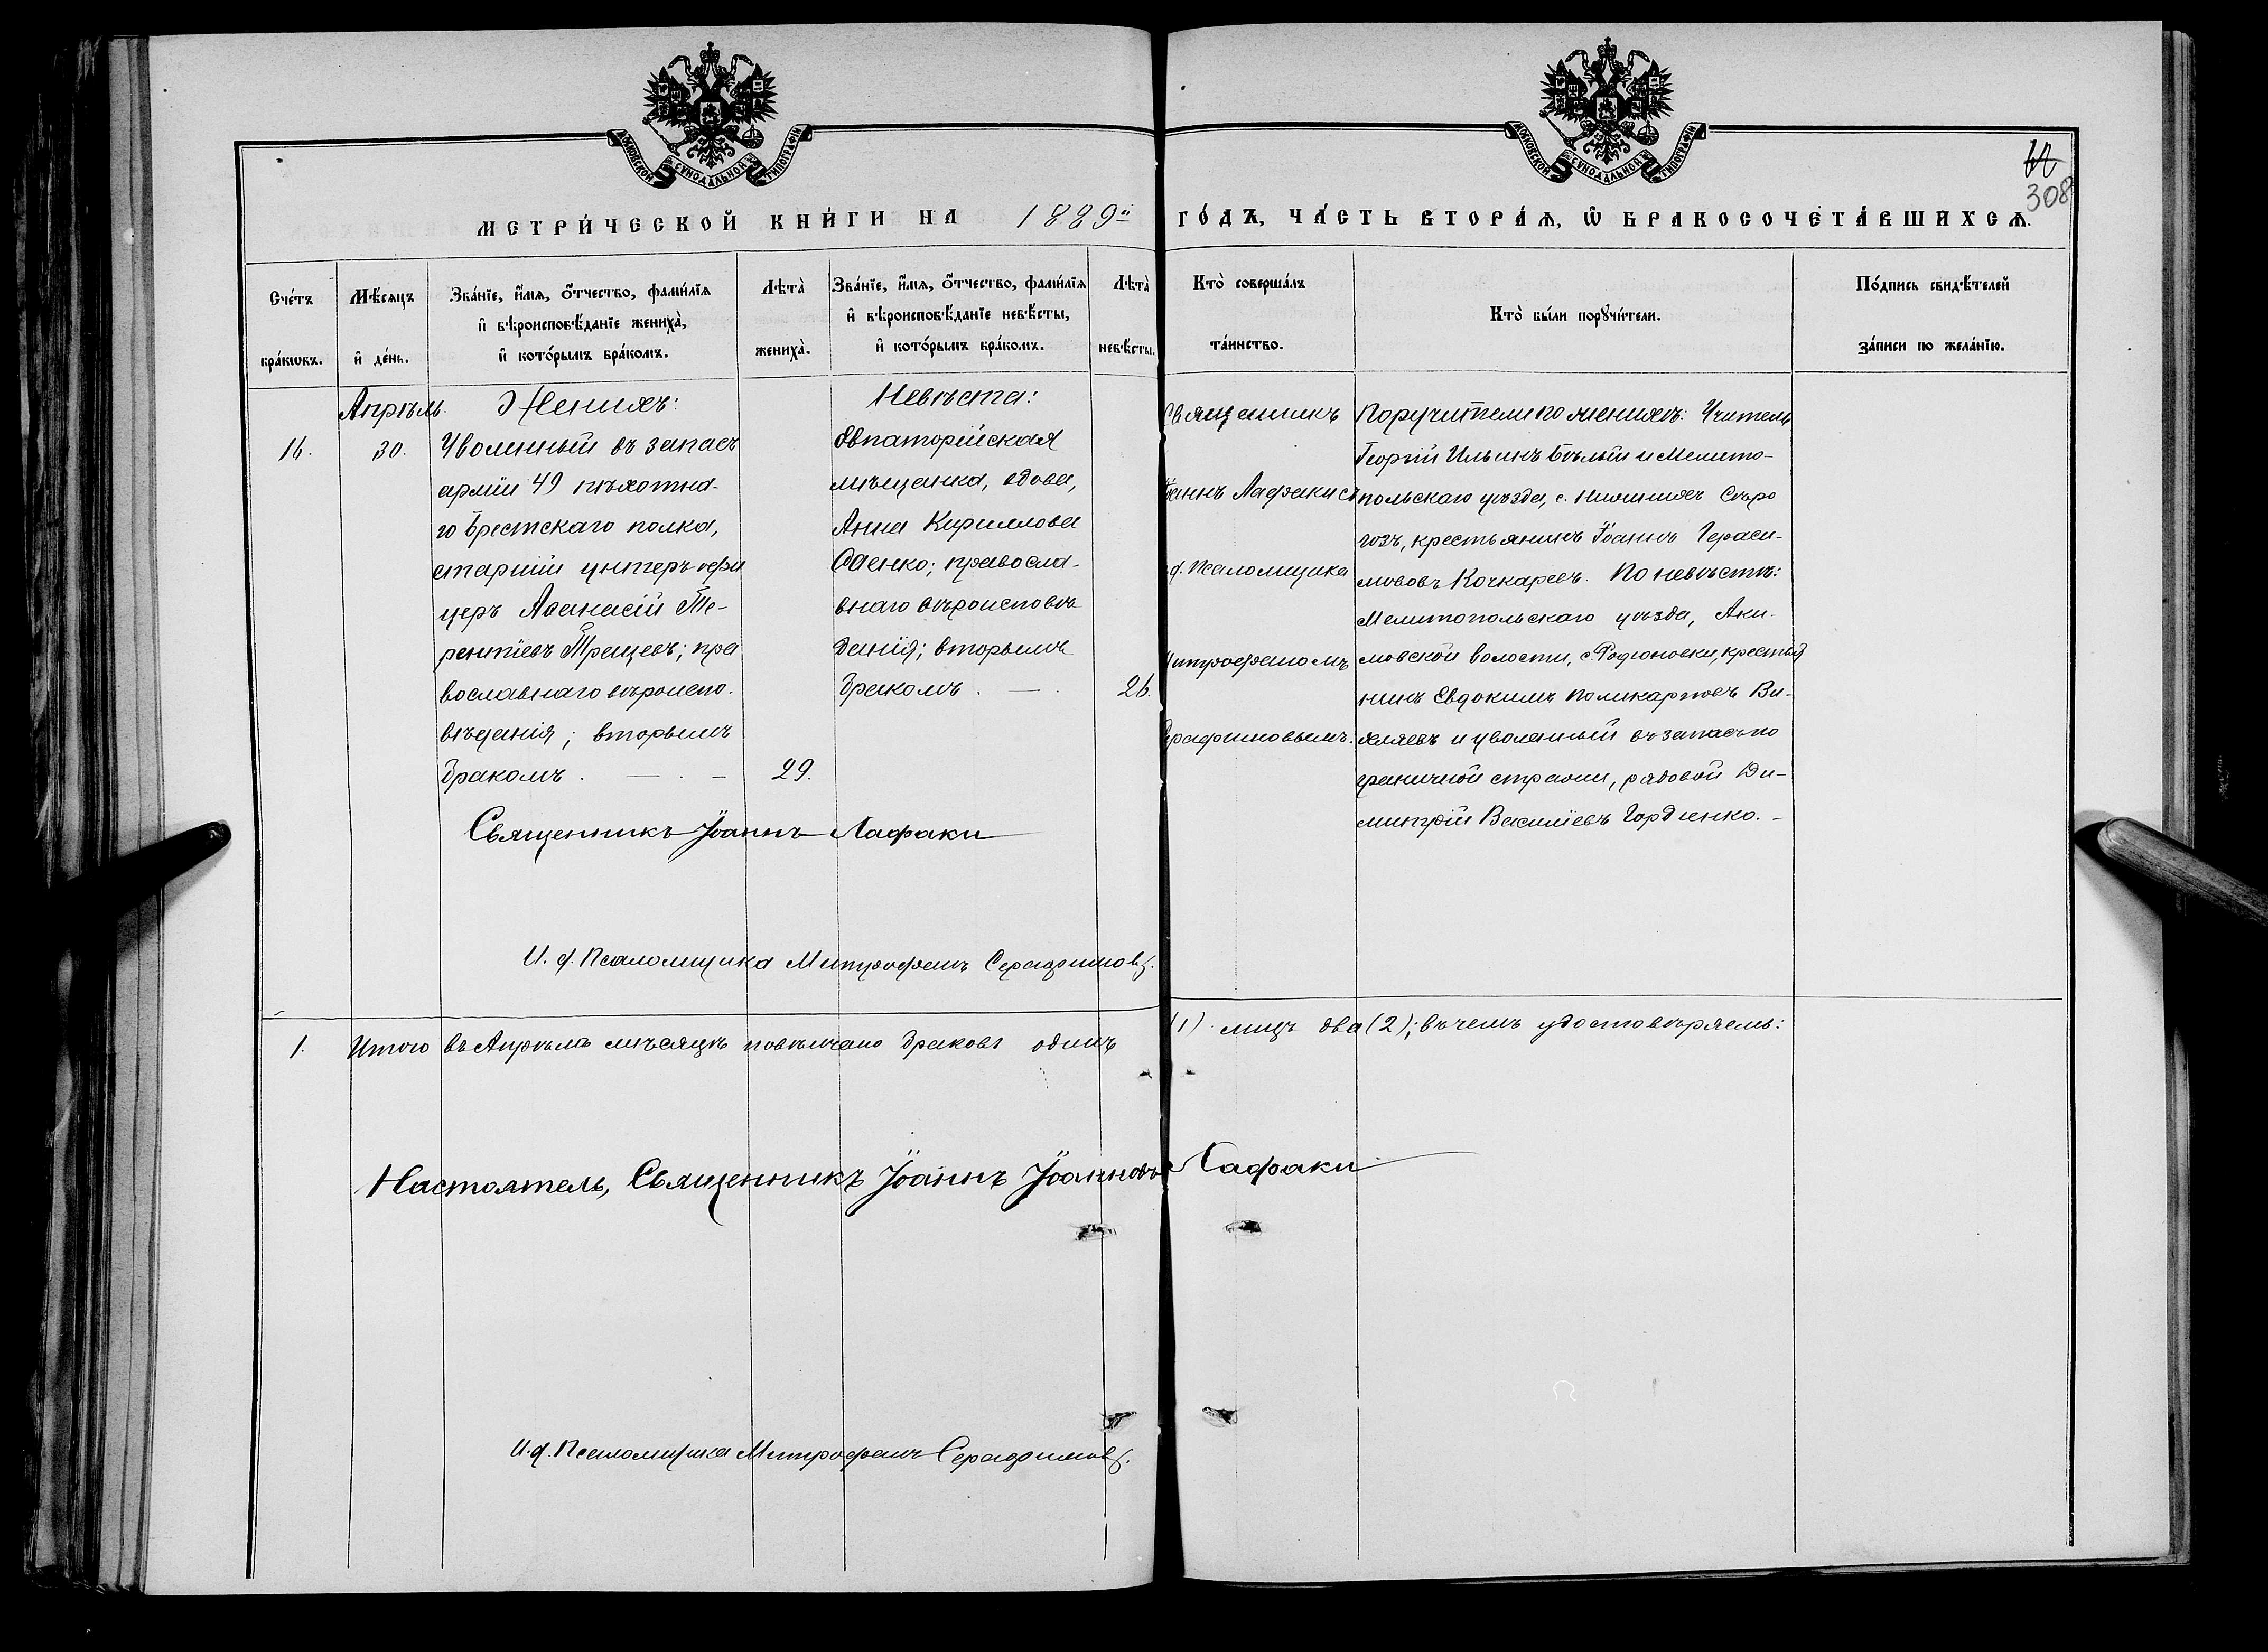 МОСКОВСКОЙ СѴНОДАЛЬНОЙ ТИПОГРАФІИ
МОСКОВСКОЙ СѴНОДАЛЬНОЙ ТИПОГРАФІИ
308
МЕТРИ́ЧЕСКОЙ КНИ́ГИ НА 1889й ГО́ДЪ, ЧА́СТЬ ВТОРА́Ѧ, Ѽ БРАКОСОЧЕТА́ВШИХСѦ.
Сче́тъ бра́кѡвъ.
Мѣ́сяцъ и҆ де́нь.
Зва́нїе, и҆́мѧ, ѻ҆́тчество, фами́лїѧ
и҆ вѣроисповѣ́данїе жениха̀,
и҆ кото́рымъ бра́комъ.
Лѣта̀ жениха̀.
Зва́нїе, и҆́мѧ, ѻ҆́тчество, фами́лїѧ
и҆ вѣроисповѣ́данїе невѣ́сты,
и҆ кото́рымъ бра́комъ.
Лѣта̀ невѣ́сты.
Кто̀ соверша́лъ
та́инство.
Кто̀ бы́ли порꙋчи́тели.
По́дпись свидѣ́телей
за́писи по жела́нїю.
Апрѣль.
16.
30.
Женихъ:
Уволенный въ запасъ
арміи 49 пѣхотна-
го Брестскаго полка,
старшій унтеръ-офи
церъ Аѳанасій Те-
рентіевъ Трещевъ; пра
вославнаго вѣроиспо-
вѣданія; вторымъ
бракомъ. — . —
29.
Невѣста:
Евпаторійская
мѣщанка, вдова,
Анна Кириллова
Саенко; правосла-
внаго вѣроисповѣ
данія; вторымъ
бракомъ. — .
26.
Священникъ
Іоаннъ Лафаки съ
ф. Псаломщика
Митрофаномъ
Серафимовымъ.
Поручители по женихѣ: Учитель
Георгій Ильинъ Бѣлый и Мелито-
польскаго уѣзда, с. Нижнихъ Сѣро
гозъ, крестьянинъ Іоаннъ Гераси-
мовъ Кочкаревъ. По невѣстѣ:
Мелитопольскаго уѣзда, Аки-
мовской волости, с. Родіоновки, крестья
нинъ Евдокимъ Поликарповъ Ви-
хляевъ и уволенный въ запасъ по
граничной стражи, рядовой Ди-
митрій Василіевъ Гордіенко. -
Священникъ Іоаннъ Лафаки
И. д. Псаломщика Митрофанъ Серафимовъ.
1. Итого въ Апрѣлѣ мѣсяцѣ повѣнчано браковъ одинъ (1). лицъ два (2); въ чемъ удостовѣряемъ:
Настоятель, Священникъ Іоаннъ Іоанновъ Лафаки
И. д. Псаломщика Митрофанъ Серафимовъ.